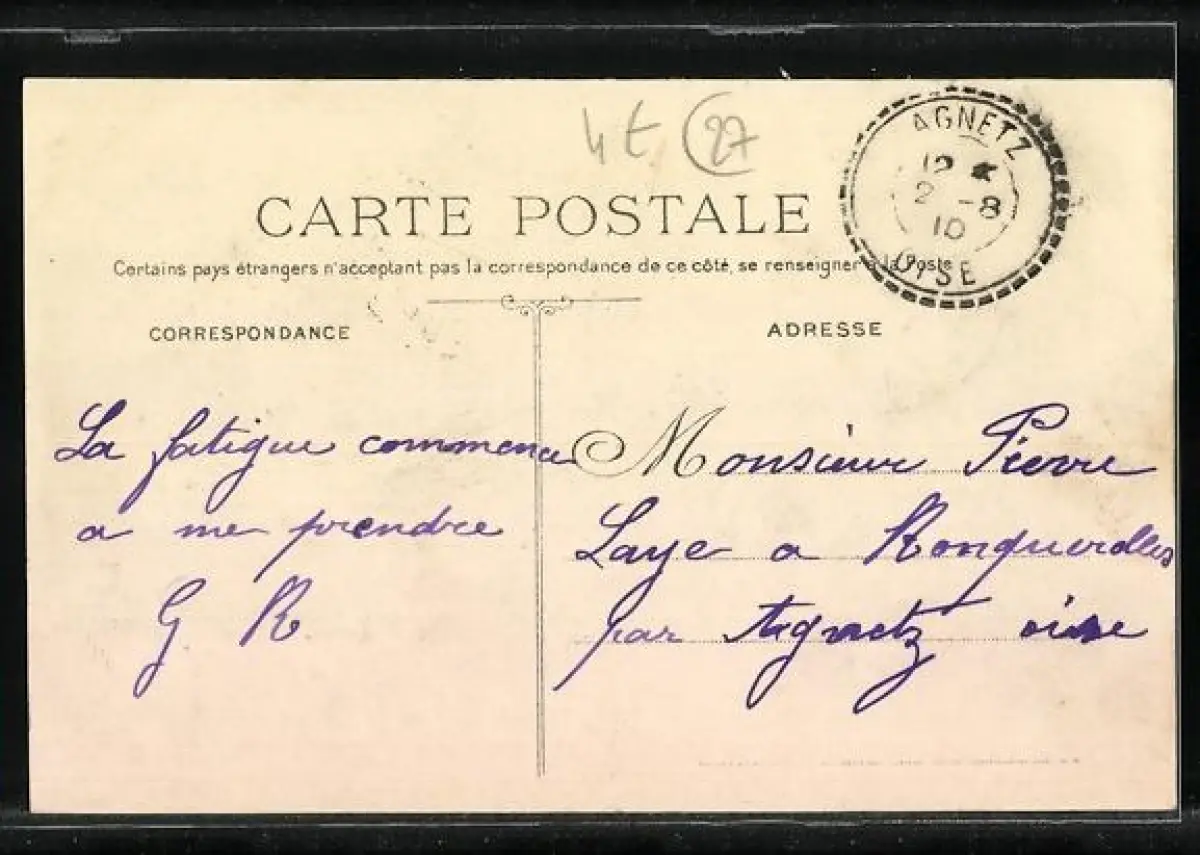 4t (27)
AGNETZ
12
2 -8
10
OISE
CARTE POSTALE
Certains pays étrangers n'acceptant pas la correspondance de ce côté, se renseigner à la Poste
CORRESPONDANCE
La fatigue commence
a me prendre
G R
ADRESSE
Monsieur Pierre
Laye a Ronquerolles
par Agnetz oise